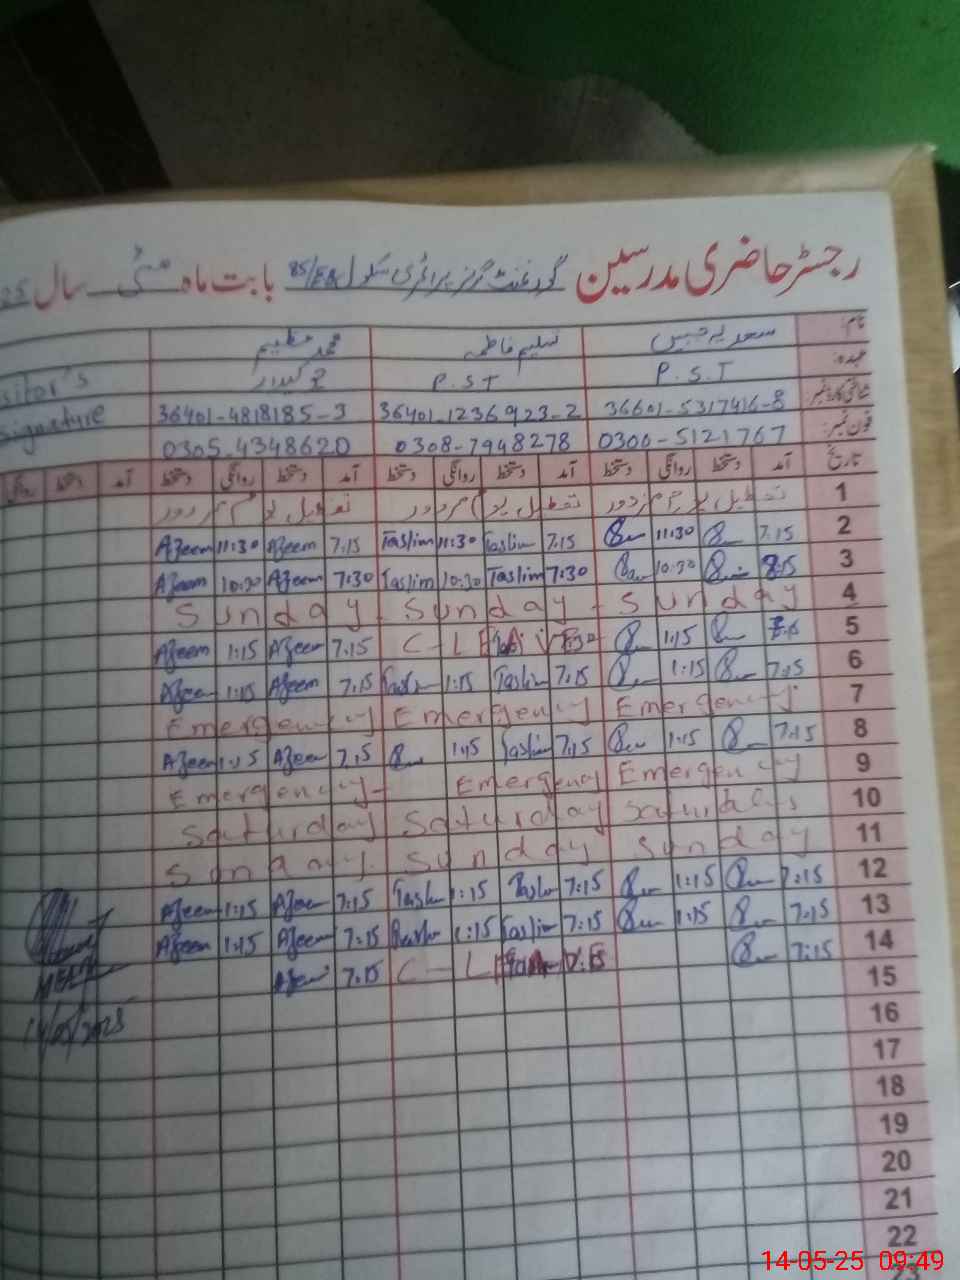 رجسٹر حاضری مدرسین گورنمنٹ گرلز پرائمری سکول 85/EB بابت ماہ مئی سال 25
نام: سعدیہ جبیں تسلیم فاطمہ محمد عظیم
عہدہ: P.S.T P.S.T چوکیدار Visitor's
شناختی کارڈ نمبر 36601-5317416-8 36401-1236923-2 36401-4818185-3 Signature
فون نمبر: 0300-5121767 0308-7948278 0305-4348620
تاریخ آمد دستخط روانگی دستخط آمد دستخط روانگی دستخط آمد دستخط روانگی دستخط آمد دستخط روانگی
1 تعطیل یوم مزدور تعطیل یوم مزدور تعطیل یوم مزدور
2 7.15 11:30 7.15 Taslim 11:30 Taslim 7.15 Azeem 11:30 Azeem
3 8:15 10:30 7:30 Taslim 10:30 Taslim 7:30 Azeem 10:30 Azeem
4 Sunday Sunday Sunday
5 1:15 C-L 7.15 Azeem 1:15 Azeem
6 7:15 1:15 7.15 Taslim 1:15 Taslim 7.15 Azeem 1:15 Azeem
7 Emergency Emergency Emergency
8 7:15 1:15 7:15 Taslim 1:15 7.15 Azeem 1:15 Azeem
9 Emergency Emergency Emergency
10 Saturday Saturday Saturday
11 Sunday Sunday Sunday
12 7:15 1:15 7:15 Taslim 1:15 Taslim 7:15 Azeem 1:15 Azeem
13 7:15 1:15 7:15 Taslim 1:15 7:15 Azeem 1:15 Azeem
14 7:15 C-L 7:15 Azeem
15
16 14/05/2025
17
18
19
20
21
22
23
14-05-25 09:49